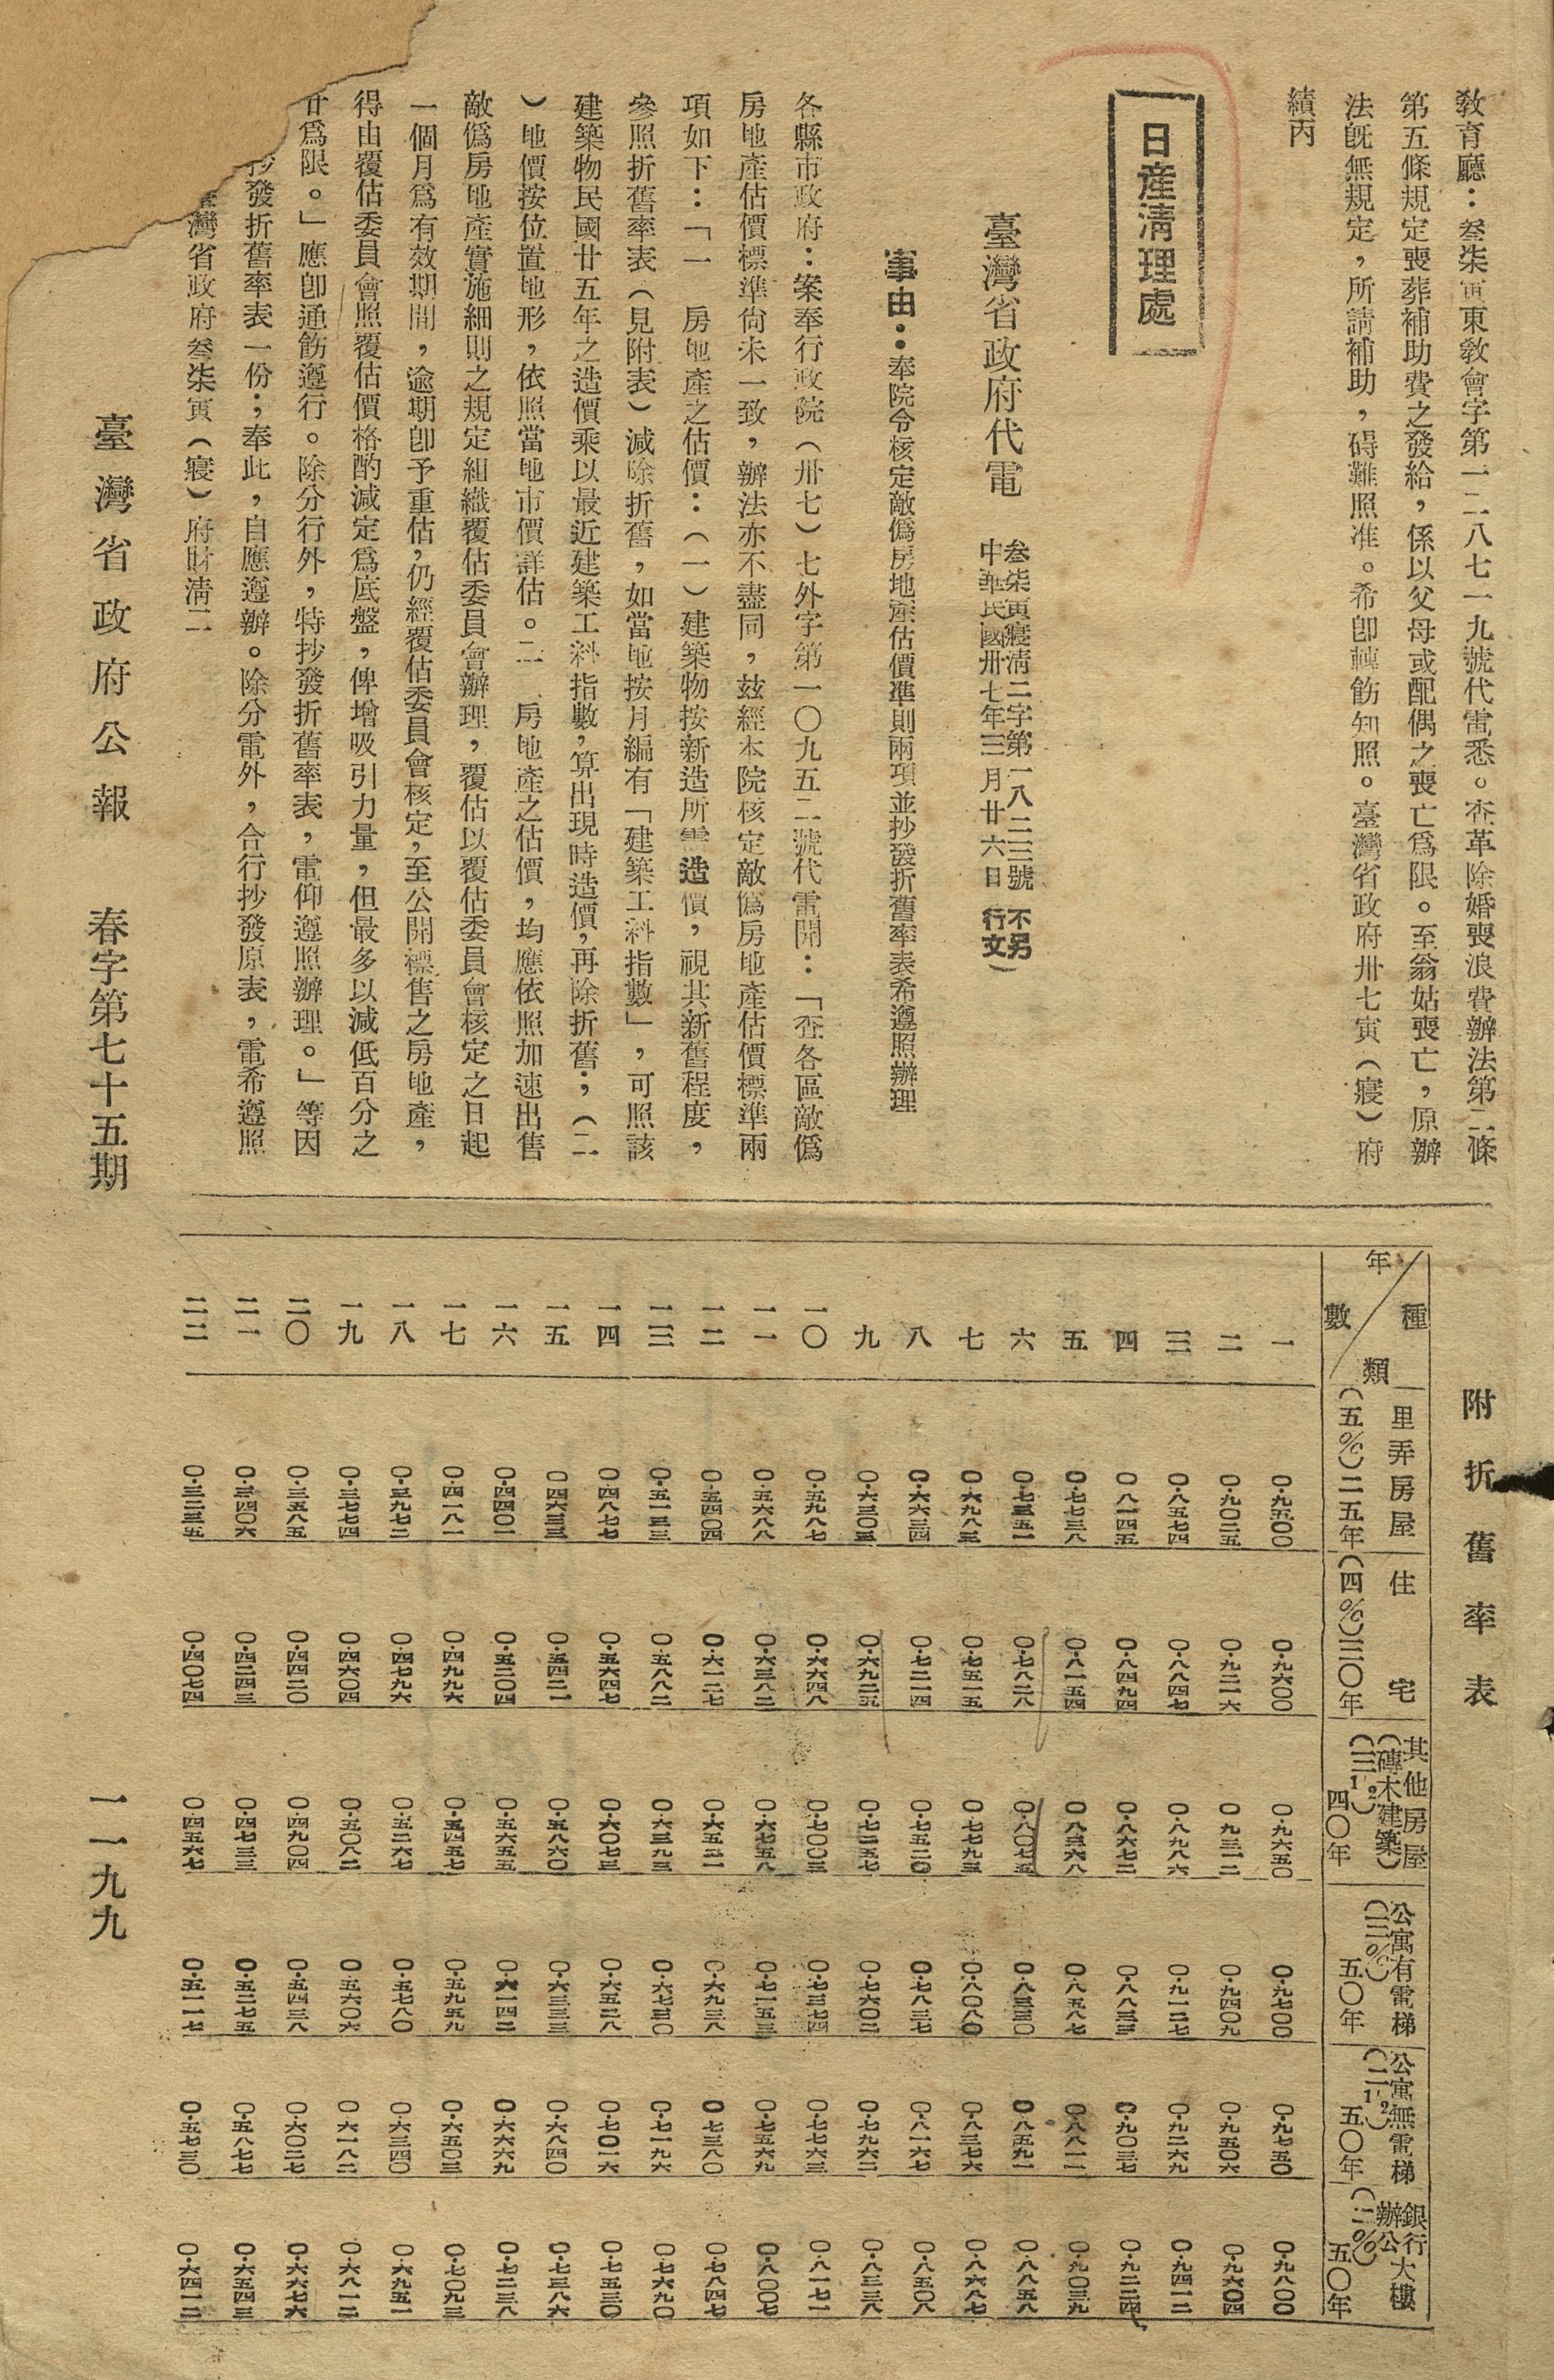 教育廳：叁柒寅東敎會字第一二八七一九號代電悉。查革除婚喪浪費辦法第二條
第五條規定喪葬補助費之發給，係以父母或配偶之喪亡爲限。至翁姑喪亡，原辦
法旣無規定，所請補助，碍難照准。希卽轉飭知照。臺灣省政府卅七寅（寢）府
績丙
日產淸理處
臺灣省政府代電
叁柒寅寢淸二字第一八二三號
中華民國卅七年三月廿六日
不另
行文）
事由：奉院令核定敵僞房地產估價準則兩項並抄發折舊率表希遵照辦理
各縣市政府：案奉行政院（卅七）七外字第一〇九五二號代電開：「查各區敵僞
房地產估價標準尙未一致，辦法亦不盡同，玆經本院核定敵僞房地產估價標準兩
項如下：「一　房地產之估價：（一）建築物按新造所需造價，視其新舊程度，
參照折舊率表（見附表）減除折舊，如當地按月編有「建築工料指數」，可照該
建築物民國廿五年之造價乘以最近建築工料指數，算出現時造價，再除折舊；（二
）地價按位置地形，依照當地市價詳估。二、房地產之估價，均應依照加速出售
敵僞房地產實施細則之規定組織覆估委員會辦理，覆估以覆估委員會核定之日起
一個月爲有效期間，逾期卽予重估，仍經覆估委員會核定，至公開標售之房地產，
得由覆估委員會照覆估價格酌減定爲底盤，俾增吸引力量，但最多以減低百分之
廿爲限。」應卽通飭遵行。除分行外，特抄發折舊率表，電仰遵照辦理。」等因
抄發折舊率表一份；奉此，自應遵辦。除分電外，合行抄發原表，電希遵照
臺灣省政府叁柒寅（寢）府財淸二
附折舊率表
種類／年數　里弄房屋（五％）二五年　住宅（四％）三〇年　其他房屋（磚木建築）（三1/2）四〇年　公寓有電梯（三％）五〇年　公寓無電梯（二1/2）五〇年　銀行辦公大樓（二％）五〇年
一　〇・九五〇〇　〇・九六〇〇　〇・九六五〇　〇・九七〇〇　〇・九七五〇　〇・九八〇〇
二　〇・九〇二五　〇・九二一六　〇・九三一二　〇・九四〇九　〇・九五〇六　〇・九六〇四
三　〇・八五七四　〇・八八四七　〇・八九八六　〇・九一二七　〇・九二六九　〇・九四一二
四　〇・八一四五　〇・八四九四　〇・八六七二　〇・八八三三　〇・九〇三七　〇・九二二四
五　〇・七七三八　〇・八一五四　〇・八三六八　〇・八五八七　〇・八八一一　〇・九〇三九
六　〇・七三五一　〇・七八二八　〇・八〇七五　〇・八三三〇　〇・八五九一　〇・八八五八
七　〇・六九八三　〇・七五一五　〇・七七九三　〇・八〇八〇　〇・八三七六　〇・八六八七
八　〇・六六三四　〇・七二一四　〇・七五二〇　〇・七八三七　〇・八一六七　〇・八五〇八
九　〇・六三〇三　〇・六九二五　〇・七二五七　〇・七六〇二　〇・七九六二　〇・八三三八
一〇　〇・五九八七　〇・六六四八　〇・七〇〇三　〇・七三七四　〇・七七六三　〇・八一七一
一一　〇・五六八八　〇・六三八二　〇・六七五八　〇・七一五三　〇・七五六九　〇・八〇〇七
一二　〇・五四〇四　〇・六一二七　〇・六五二一　〇・六九三八　〇・七三八〇　〇・七八四七
一三　〇・五一三三　〇・五八八二　〇・六三九三　〇・六七三〇　〇・七一九六　〇・七六九〇
一四　〇・四八七七　〇・五六四七　〇・六〇七三　〇・六五二八　〇・七〇一六　〇・七五三〇
一五　〇・四六三三　〇・五四二一　〇・五八六〇　〇・六三三三　〇・六八四〇　〇・七三八六
一六　〇・四四〇一　〇・五二〇四　〇・五六五五　〇・六一四二　〇・六六六九　〇・七二三八
一七　〇・四一八一　〇・四九九六　〇・五四五七　〇・五九五九　〇・六五〇三　〇・七〇九三
一八　〇・三九七二　〇・四七九六　〇・五二六七　〇・五七八〇　〇・六三四〇　〇・六九五一
一九　〇・三七七四　〇・四六〇四　〇・五〇八二　〇・五六〇六　〇・六一八二　〇・六八一二
二〇　〇・三五八五　〇・四四二〇　〇・四九〇四　〇・五四三八　〇・六〇二七　〇・六六七六
二一　〇・三四〇六　〇・四二四三　〇・四七三三　〇・五二七五　〇・五八七七　〇・六五四三
二二　〇・三二三五　〇・四〇七四　〇・四五六七　〇・五一一七　〇・五七三〇　〇・六四一二
臺灣省政府公報　春字第七十五期　一一九九